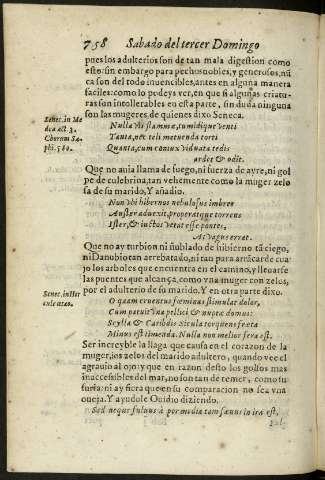 758 Sabado del tercer Domingo
pues los adulterios son de tan mala digestion como
este: sin embargo para pechos nobles, y generosos, nũ
ca son del todo inuencibles, antes en alguna manera
faciles: como lo podeys ver, en que si algunas criatu-
ras son intollerables en esta parte, sin duda ninguna
son las mugeres de quienes dixo Seneca.
Senec. in Me
dea act. 3.
Chorus Sa-
phi. 580.
Nulla vis flammæ, tumidique venti
Tanta, nec teli metuenda torti
Quanta, cum coniux viduata tedis
ardet & odit.
Que no auia llama de fuego, ni fuerza de ayre, ni gol
pe de culebrina, tan vehemente como la muger zelo
sa de su marido, Y añadio.
Non vbi hibernos nebulosus imbres
Auster aduexit, properatque torrens
Ister, & iuctos vetat esse pontes,
Ac vagus errat.
Que no ay turbion ni ñublado de hibierno tã ciego,
ni Danubio tan arrebatado, ni tan para arrãcar de cua
jo los arboles que encuentra en el camino, y lleuarse
las puentes que alcança, como vna muger con zelos,
por el adulterio de su marido. Y en otra parte dixo.
Senec. in Her
cule œteo.
O quam cruentus fœminas stimulat dolor,
Cum patuit vna pellici & nuptæ domus:
Scylla & Caribdis sicula torquens freta
Minus est timenda. Nulla non melior fera est.
Ser increyble la llaga que causa en el corazon de la
muger, los zelos del marido adultero, quando vee el
agrauio al ojo: y que en razon desto los golfos mas
inaccessibles del mar, no son tan de temer, como su
furia, ni ay fiera que en su comparacion no sea vna
oueja. Y ayudole Ouidio diziendo.
Sed neque fuluus aper media tam sæuus in ira est,